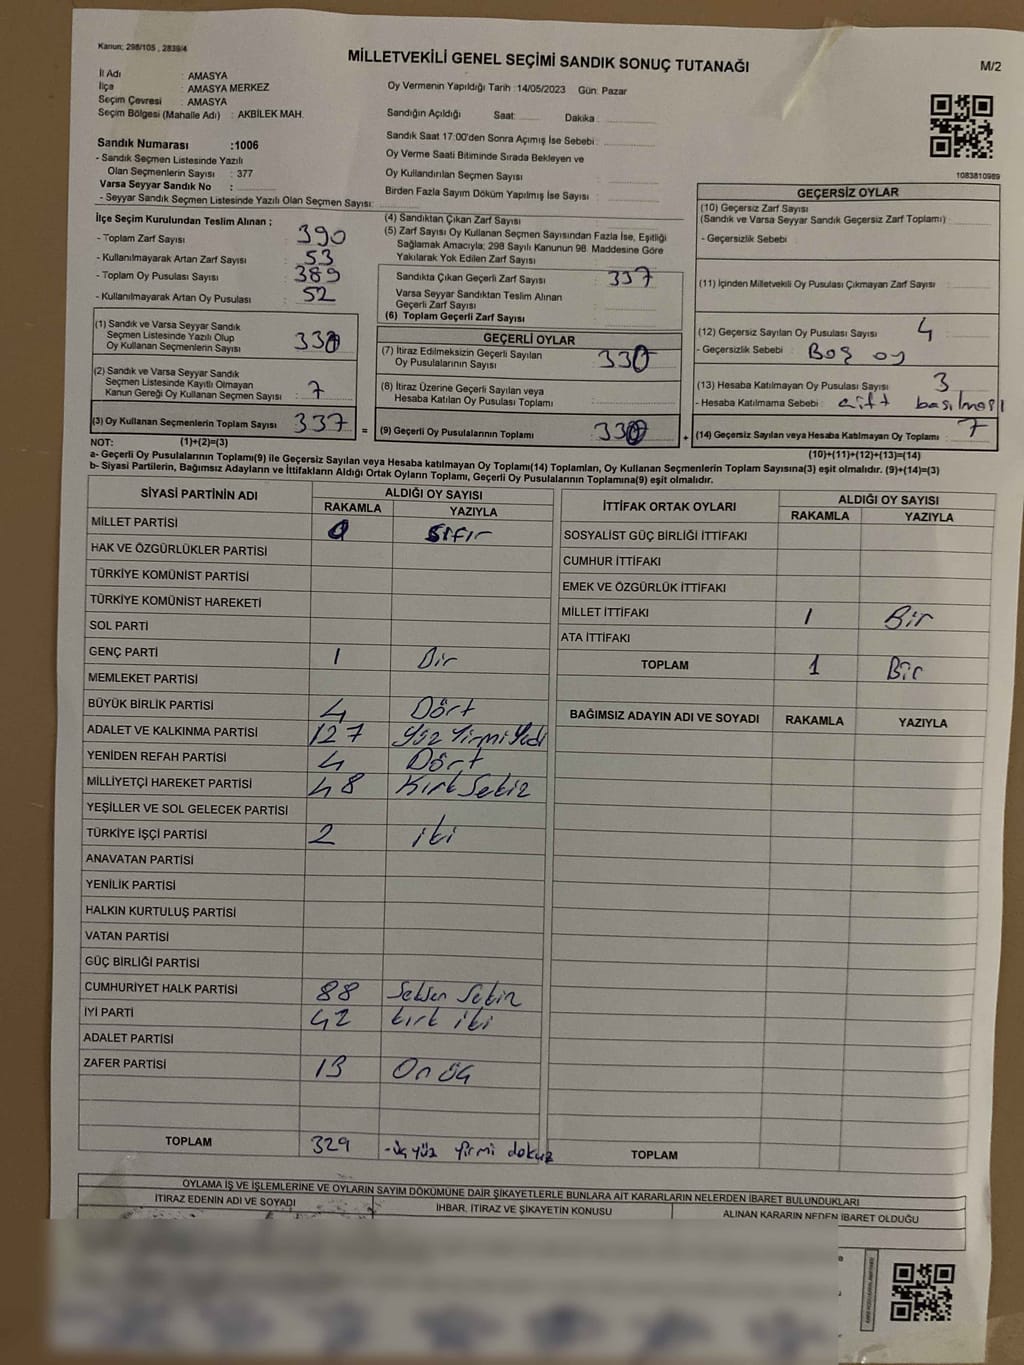 Kanun; 298/105 , 2839/4
MİLLETVEKİLİ GENEL SEÇİMİ SANDIK SONUÇ TUTANAĞI
M/2
İl Adı : AMASYA
İlçe : AMASYA MERKEZ
Seçim Çevresi : AMASYA
Seçim Bölgesi (Mahalle Adı) : AKBİLEK MAH.
Oy Vermenin Yapıldığı Tarih : 14/05/2023 Gün: Pazar
Sandığın Açıldığı Saat: Dakika :
Sandık Saat 17:00'den Sonra Açılmış İse Sebebi :
Oy Verme Saati Bitiminde Sırada Bekleyen ve
Oy Kullandırılan Seçmen Sayısı :
Birden Fazla Sayım Döküm Yapılmış İse Sayısı :
1083810989
Sandık Numarası :1006
- Sandık Seçmen Listesinde Yazılı
Olan Seçmenlerin Sayısı : 377
Varsa Seyyar Sandık No :
- Seyyar Sandık Seçmen Listesinde Yazılı Olan Seçmen Sayısı:
İlçe Seçim Kurulundan Teslim Alınan ;
- Toplam Zarf Sayısı : 390
- Kullanılmayarak Artan Zarf Sayısı : 53
- Toplam Oy Pusulası Sayısı : 389
- Kullanılmayarak Artan Oy Pusulası : 52
(1) Sandık ve Varsa Seyyar Sandık
Seçmen Listesinde Yazılı Olup
Oy Kullanan Seçmenlerin Sayısı : 330
(2) Sandık ve Varsa Seyyar Sandık
Seçmen Listesinde Kayıtlı Olmayan
Kanun Gereği Oy Kullanan Seçmen Sayısı : 7
(3) Oy Kullanan Seçmenlerin Toplam Sayısı : 337 =
(4) Sandıktan Çıkan Zarf Sayısı :
(5) Zarf Sayısı Oy Kullanan Seçmen Sayısından Fazla İse, Eşitliği
Sağlamak Amacıyla; 298 Sayılı Kanunun 98. Maddesine Göre
Yakılarak Yok Edilen Zarf Sayısı :
Sandıkta Çıkan Geçerli Zarf Sayısı : 337
Varsa Seyyar Sandıktan Teslim Alınan
Geçerli Zarf Sayısı :
(6) Toplam Geçerli Zarf Sayısı :
GEÇERLİ OYLAR
(7) İtiraz Edilmeksizin Geçerli Sayılan
Oy Pusulalarının Sayısı : 330
(8) İtiraz Üzerine Geçerli Sayılan veya
Hesaba Katılan Oy Pusulası Toplamı :
(9) Geçerli Oy Pusulalarının Toplamı : 330 +
GEÇERSİZ OYLAR
(10) Geçersiz Zarf Sayısı
(Sandık ve Varsa Seyyar Sandık Geçersiz Zarf Toplamı) :
- Geçersizlik Sebebi :
(11) İçinden Milletvekili Oy Pusulası Çıkmayan Zarf Sayısı :
(12) Geçersiz Sayılan Oy Pusulası Sayısı : 4
- Geçersizlik Sebebi : Boş oy
(13) Hesaba Katılmayan Oy Pusulası Sayısı : 3
- Hesaba Katılmama Sebebi : çift basılması
(14) Geçersiz Sayılan veya Hesaba Katılmayan Oy Toplamı : 7
NOT: (1)+(2)=(3)
(10)+(11)+(12)+(13)=(14)
a- Geçerli Oy Pusulalarının Toplamı(9) ile Geçersiz Sayılan veya Hesaba katılmayan Oy Toplamı(14) Toplamları, Oy Kullanan Seçmenlerin Toplam Sayısına(3) eşit olmalıdır. (9)+(14)=(3)
b- Siyasi Partilerin, Bağımsız Adayların ve İttifakların Aldığı Ortak Oyların Toplamı, Geçerli Oy Pusulalarının Toplamına(9) eşit olmalıdır.
SİYASİ PARTİNİN ADI ALDIĞI OY SAYISI
RAKAMLA YAZIYLA
MİLLET PARTİSİ 0 Sıfır
HAK VE ÖZGÜRLÜKLER PARTİSİ
TÜRKİYE KOMÜNİST PARTİSİ
TÜRKİYE KOMÜNİST HAREKETİ
SOL PARTİ
GENÇ PARTİ 1 Bir
MEMLEKET PARTİSİ
BÜYÜK BİRLİK PARTİSİ 4 Dört
ADALET VE KALKINMA PARTİSİ 127 Yüz Yirmi Yedi
YENİDEN REFAH PARTİSİ 4 Dört
MİLLİYETÇİ HAREKET PARTİSİ 48 Kırk Sekiz
YEŞİLLER VE SOL GELECEK PARTİSİ
TÜRKİYE İŞÇİ PARTİSİ 2 iki
ANAVATAN PARTİSİ
YENİLİK PARTİSİ
HALKIN KURTULUŞ PARTİSİ
VATAN PARTİSİ
GÜÇ BİRLİĞİ PARTİSİ
CUMHURİYET HALK PARTİSİ 88 Seksen Sekiz
İYİ PARTİ 42 kırk iki
ADALET PARTİSİ
ZAFER PARTİSİ 13 On üç
TOPLAM 329 -üç yüz yirmi dokuz
İTTİFAK ORTAK OYLARI ALDIĞI OY SAYISI
RAKAMLA YAZIYLA
SOSYALİST GÜÇ BİRLİĞİ İTTİFAKI
CUMHUR İTTİFAKI
EMEK VE ÖZGÜRLÜK İTTİFAKI
MİLLET İTTİFAKI 1 Bir
ATA İTTİFAKI
TOPLAM 1 Bir
BAĞIMSIZ ADAYIN ADI VE SOYADI RAKAMLA YAZIYLA
TOPLAM
OYLAMA İŞ VE İŞLEMLERİNE VE OYLARIN SAYIM DÖKÜMÜNE DAİR ŞİKAYETLERLE BUNLARA AİT KARARLARIN NELERDEN İBARET BULUNDUKLARI
İTİRAZ EDENİN ADI VE SOYADI İHBAR, İTİRAZ VE ŞİKAYETİN KONUSU ALINAN KARARIN NEDEN İBARET OLDUĞU